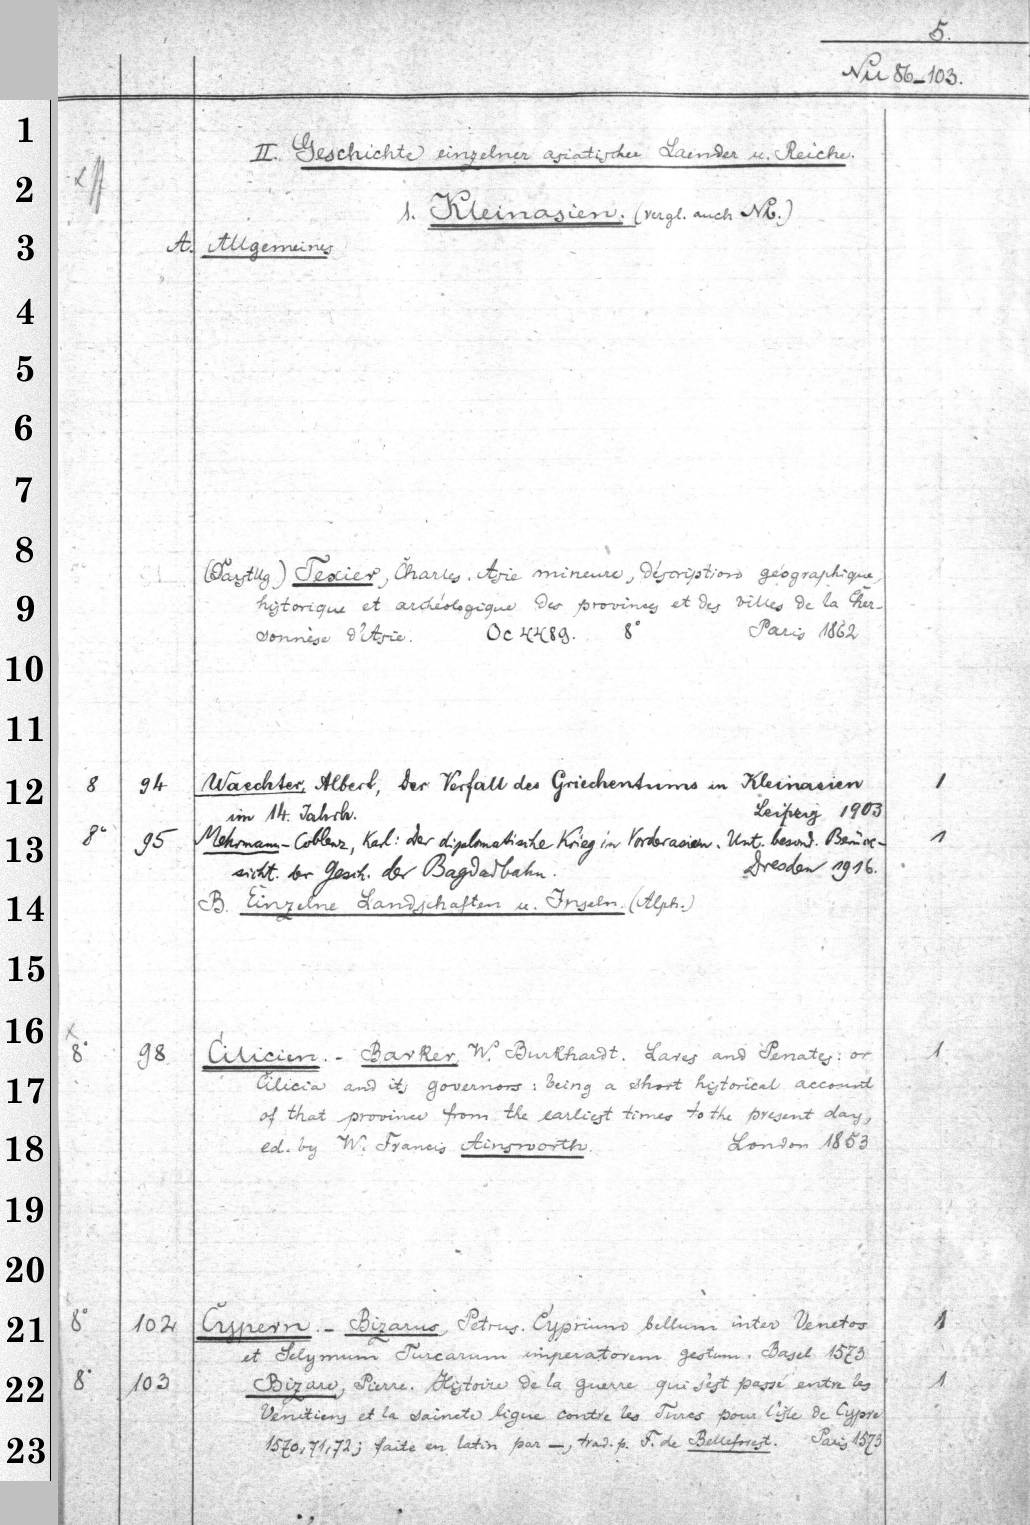 5.
Nu 86-103.
1
II. Geschichte einzelner asiatischer Laender u. Reiche.
2
1. Kleinasien. (vergl. auch NR.)
3 A. Allgemeines
4
5
6
7
8
Texier, Charles. Asie mineure, déscription géographique,
9 historique et archéologique des provinces et des villes de la Cher-
sonnèse d'Asie. Oc 4489. 8° Paris 1862
10
11
12 8 94 Waechter, Albert, Der Verfall des Griechentums in Kleinasien 1
im 14. Jahrh. Leipzig 1903
13 8° 95 Mehrmann-Coblenz, Karl: Der diplomatische Krieg in Vorderasien. Unt. besond. Berück- 1
sicht. der Gesch. der Bagdadbahn. Dresden 1916.
14 B. Einzelne Landschaften u. Inseln. (Alph.)
15
16 x
8° 98 Cilicien. - Barker, W. Burkhardt. Lares and Penates: or 1
17 Cilicia and its governors: being a short historical account
of that province from the earliest times to the present day,
18 ed. by W. Francis Ainsworth. London 1853
19
20
21 8° 102 Cypern. - Bizarus, Petrus. Cyprium bellum inter Venetos 1
et Selymum Turcarum imperatorem gestum. Basel 1573
22 8° 103 Bizare, Pierre. Histoire de la guerre qui s'est passé entre les 1
Venitiens et la saincte ligue contre les Turcs pour l'isle de Cypre
23 1570, 71, 72; faite en latin par -, trad. p. F. de Belleforest. Paris 1573